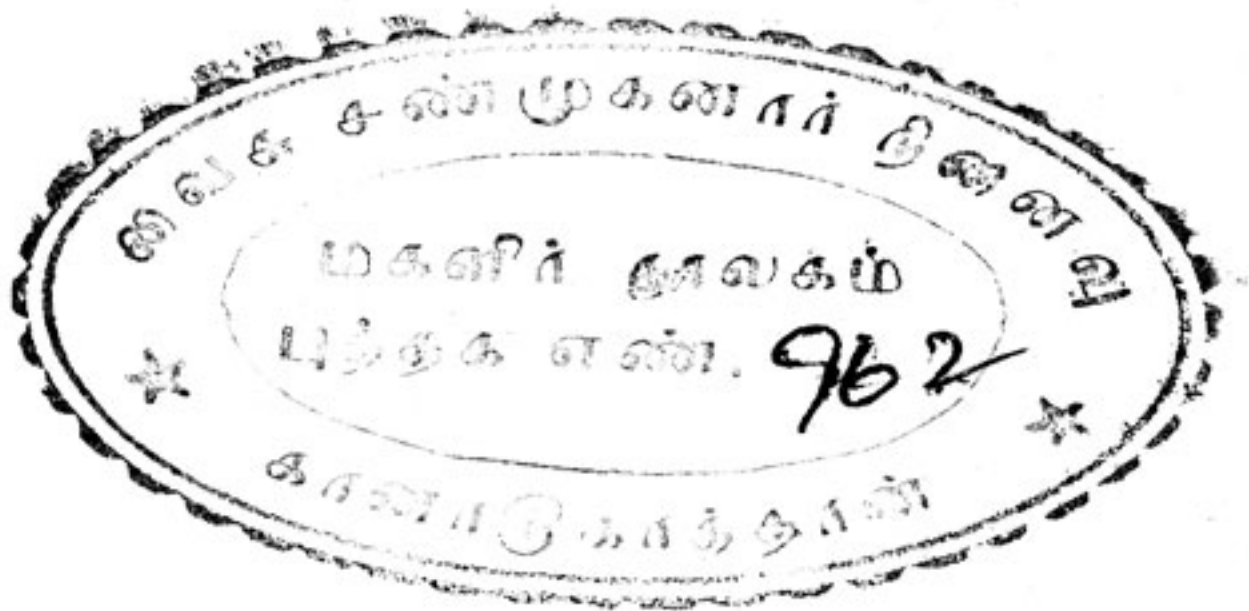 வை.சு. சண்முகனார் நினைவு
மகளிர் நூலகம்
புத்தக எண். 962
கானாடுகாத்தான்